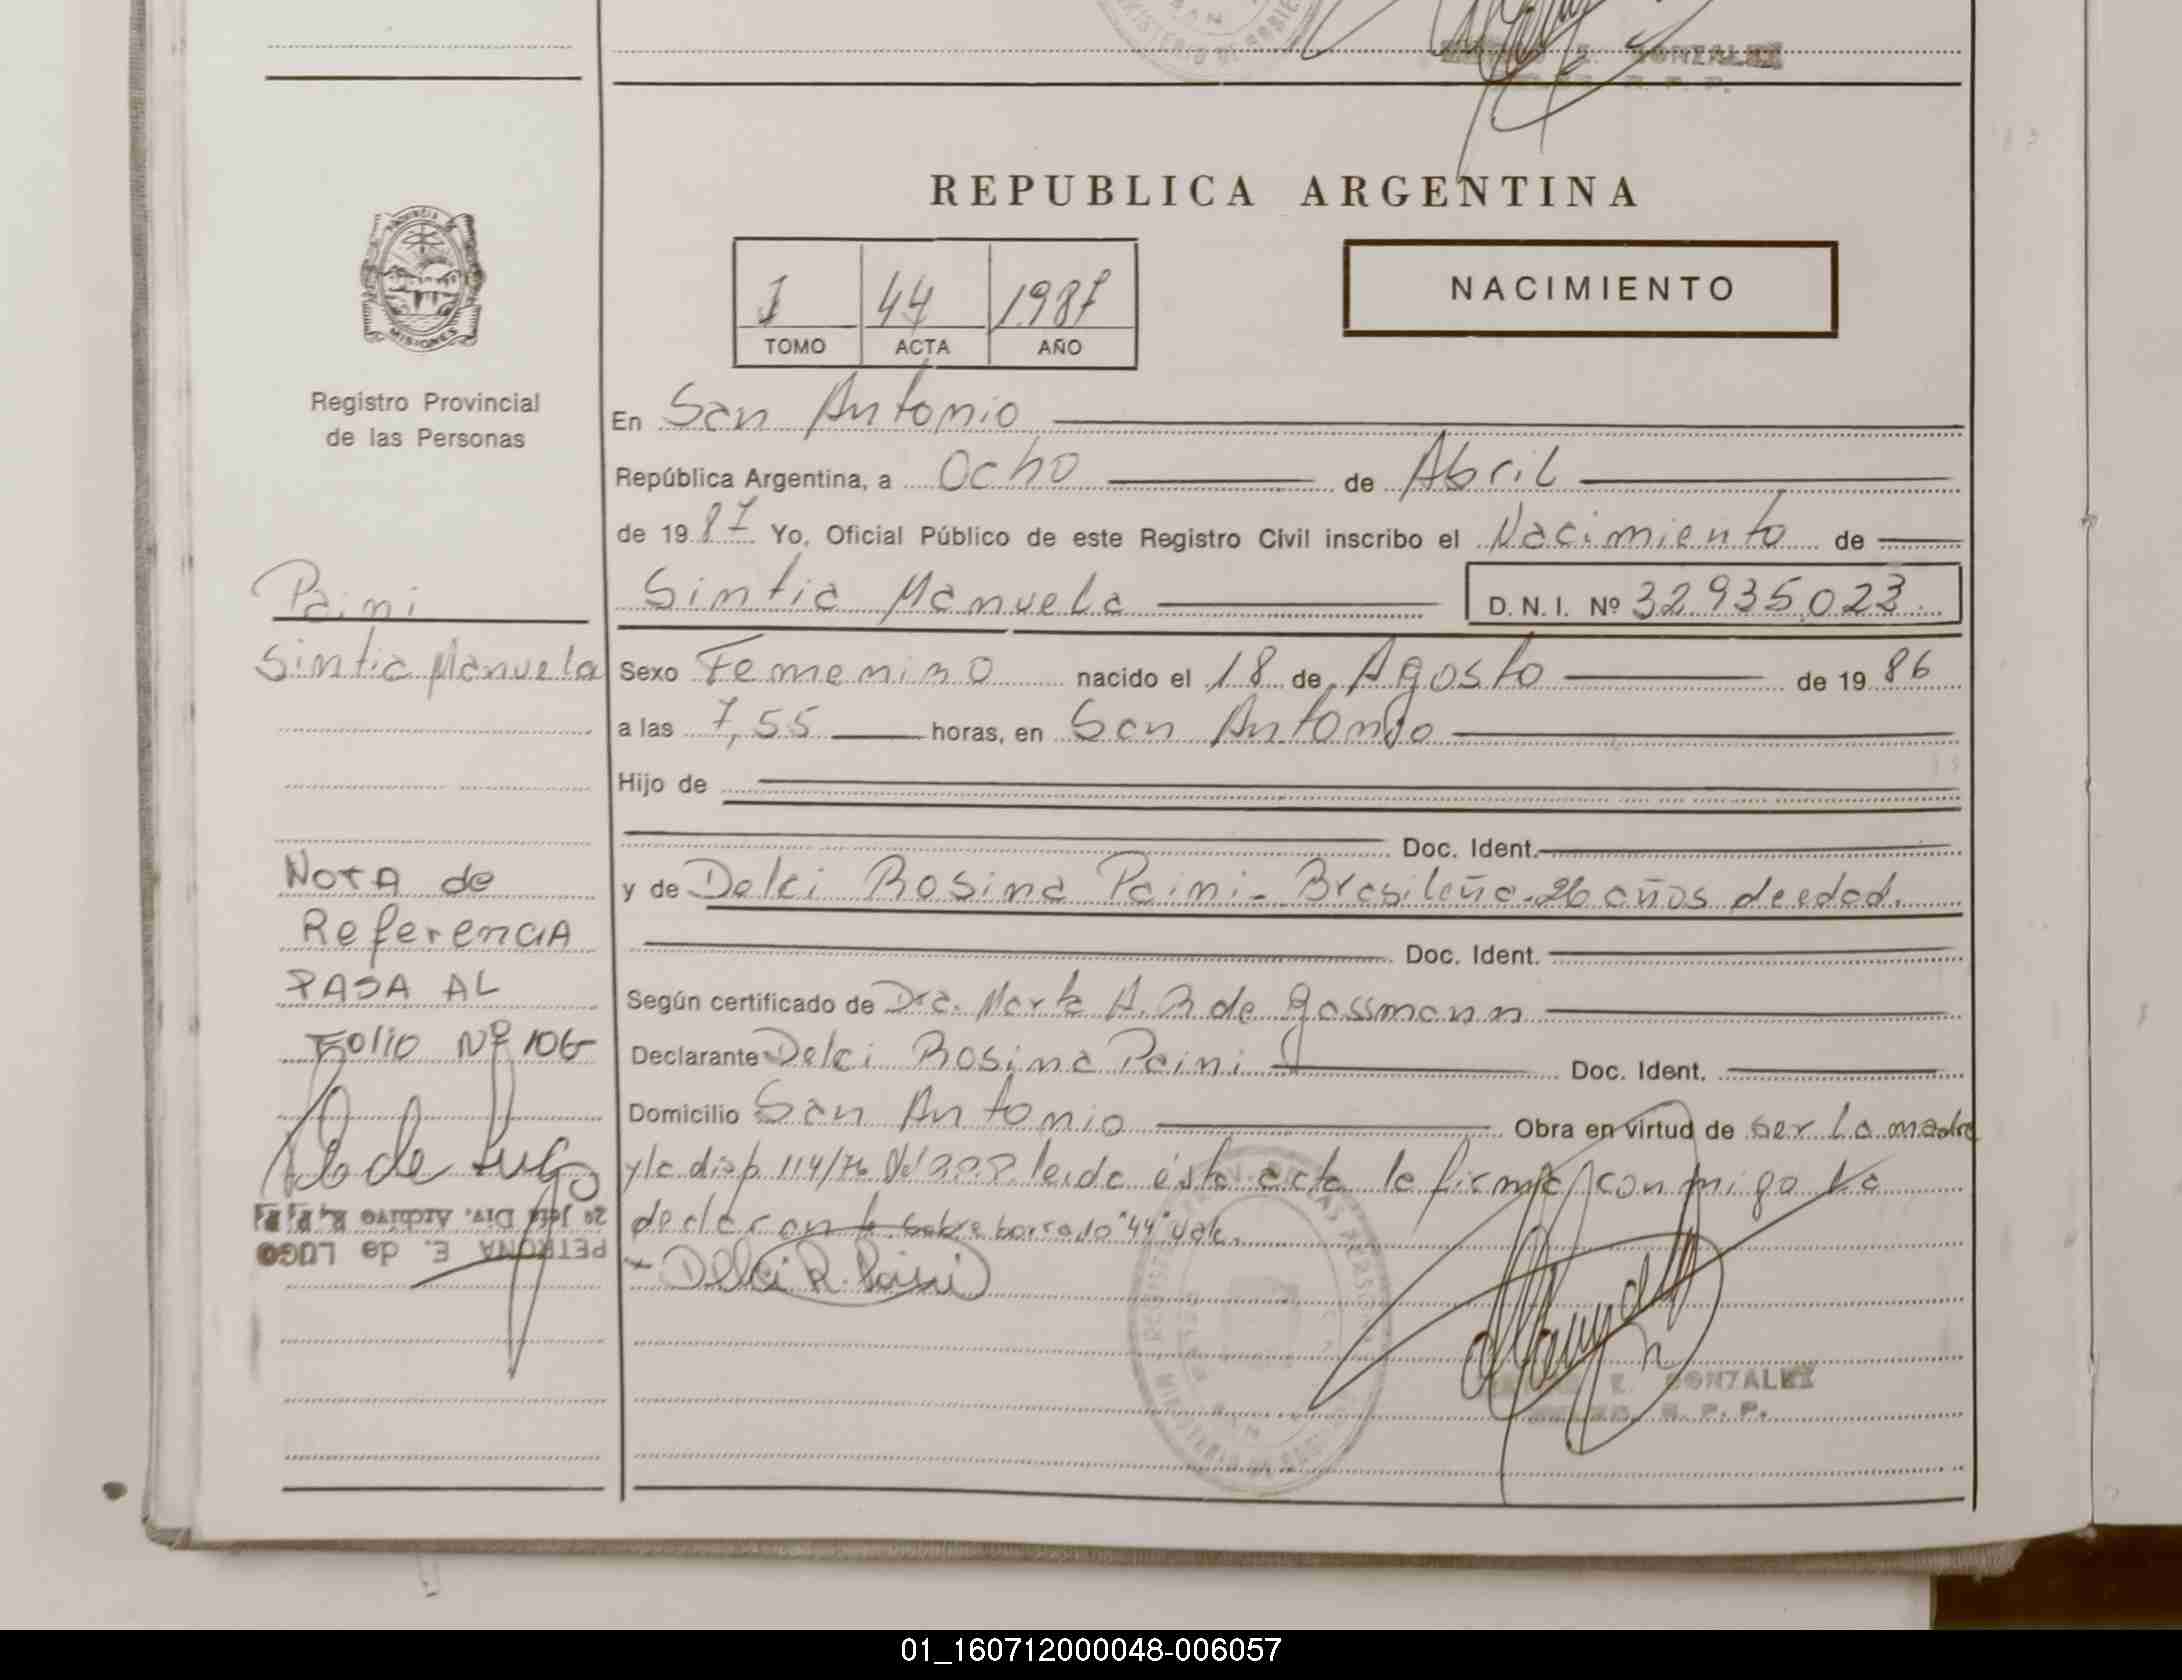 GONZALEZ
REPUBLICA ARGENTINA
PROVINCIA DE
MISIONES
I 44 1987
TOMO ACTA AÑO
NACIMIENTO
Registro Provincial
de las Personas
En San Antonio
República Argentina, a Ocho de Abril
de 19 87 Yo, Oficial Público de este Registro Civil inscribo el Nacimiento de
Sintia Manuela D.N.I. Nº 32935023
Sexo Femenino nacido el 18 de Agosto de 19 86
a las 7,55 horas, en San Antonio
Hijo de
Doc. Ident.
y de Delci Rosina Paini - Brasileña - 26 años de edad.
Doc. Ident.
Según certificado de Dra. Marta A. R de Gassmann
Declarante Delci Rosina Paini Doc. Ident.
Domicilio San Antonio Obra en virtud de ser la madre
y la disp. 114/76 leida ésta acta la firma conmigo la
declarante sobre borrado "44" vale.
Delci R. Paini
E. GONZALEZ
R. P. P.
Paini
Sintia Manuela
NOTA de
Referencia
PASA AL
Folio Nº 106
de Lugo
PETRONA E. de LUGO
2º Jefe Div. Archivo R.P.P.
01_160712000048-006057